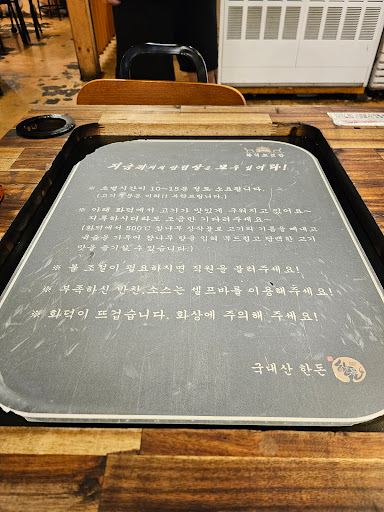 지금까지의 삼겹살은 모두 잊어라!
※ 조리시간이 10~15분 정도 소요됩니다.
(고기 주문은 미리 부탁드립니다.)
※ 아래 화덕에서 고기가 맛있게 구워지고 있어요~
지루하시더라도 조금만 기다려주세요~
(화덕에서 500℃ 참나무 장작불로 고기의 기름을 빼내고
육즙을 가두어 참나무 향을 입혀 부드럽고 담백한 고기
맛을 즐기실 수 있습니다.)
※ 불 조절이 필요하시면 직원을 불러주세요!
※ 부족하신 반찬,소스는 셀프바를 이용해주세요!
※ 화덕이 뜨겁습니다. 화상에 주의해 주세요!
국내산 한돈
한돈